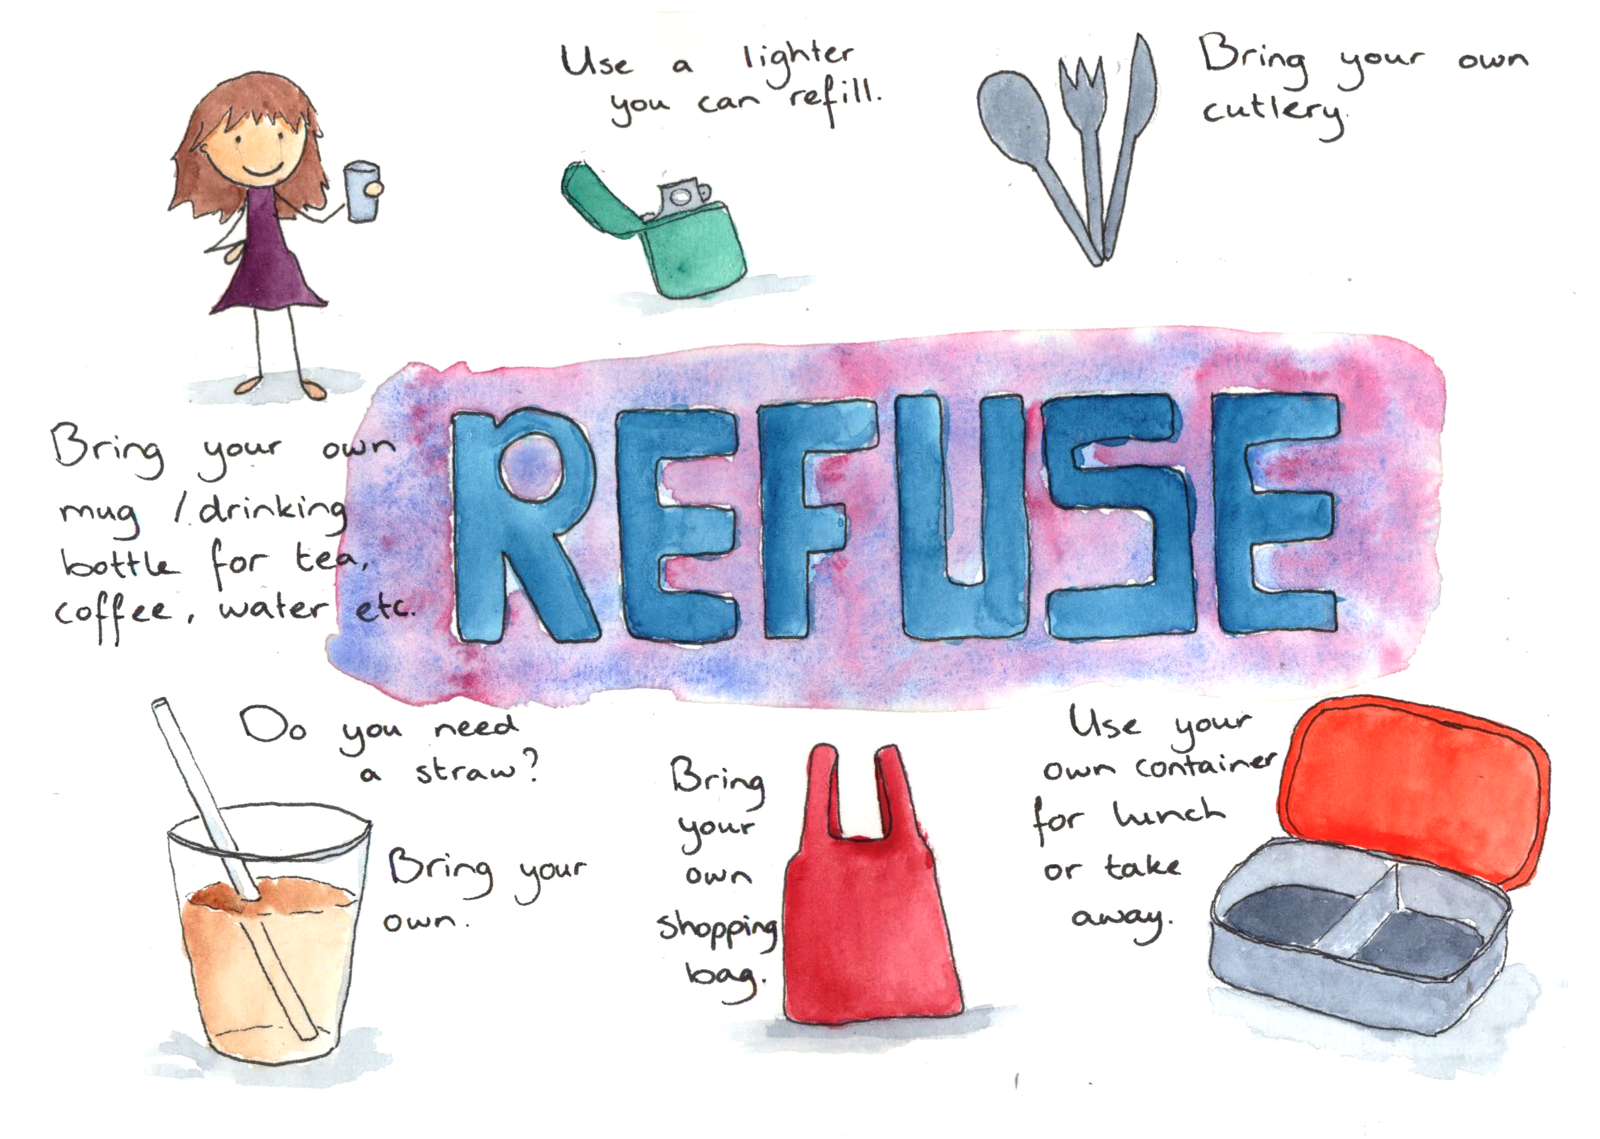 Use a lighter
you can refill.
Bring your own
cutlery.
REFUSE
Bring your own
mug / drinking
bottle for tea,
coffee, water etc.
Do you need
a straw?
Bring your
own.
Bring
your
own
shopping
bag.
Use your
own container
for lunch
or take
away.